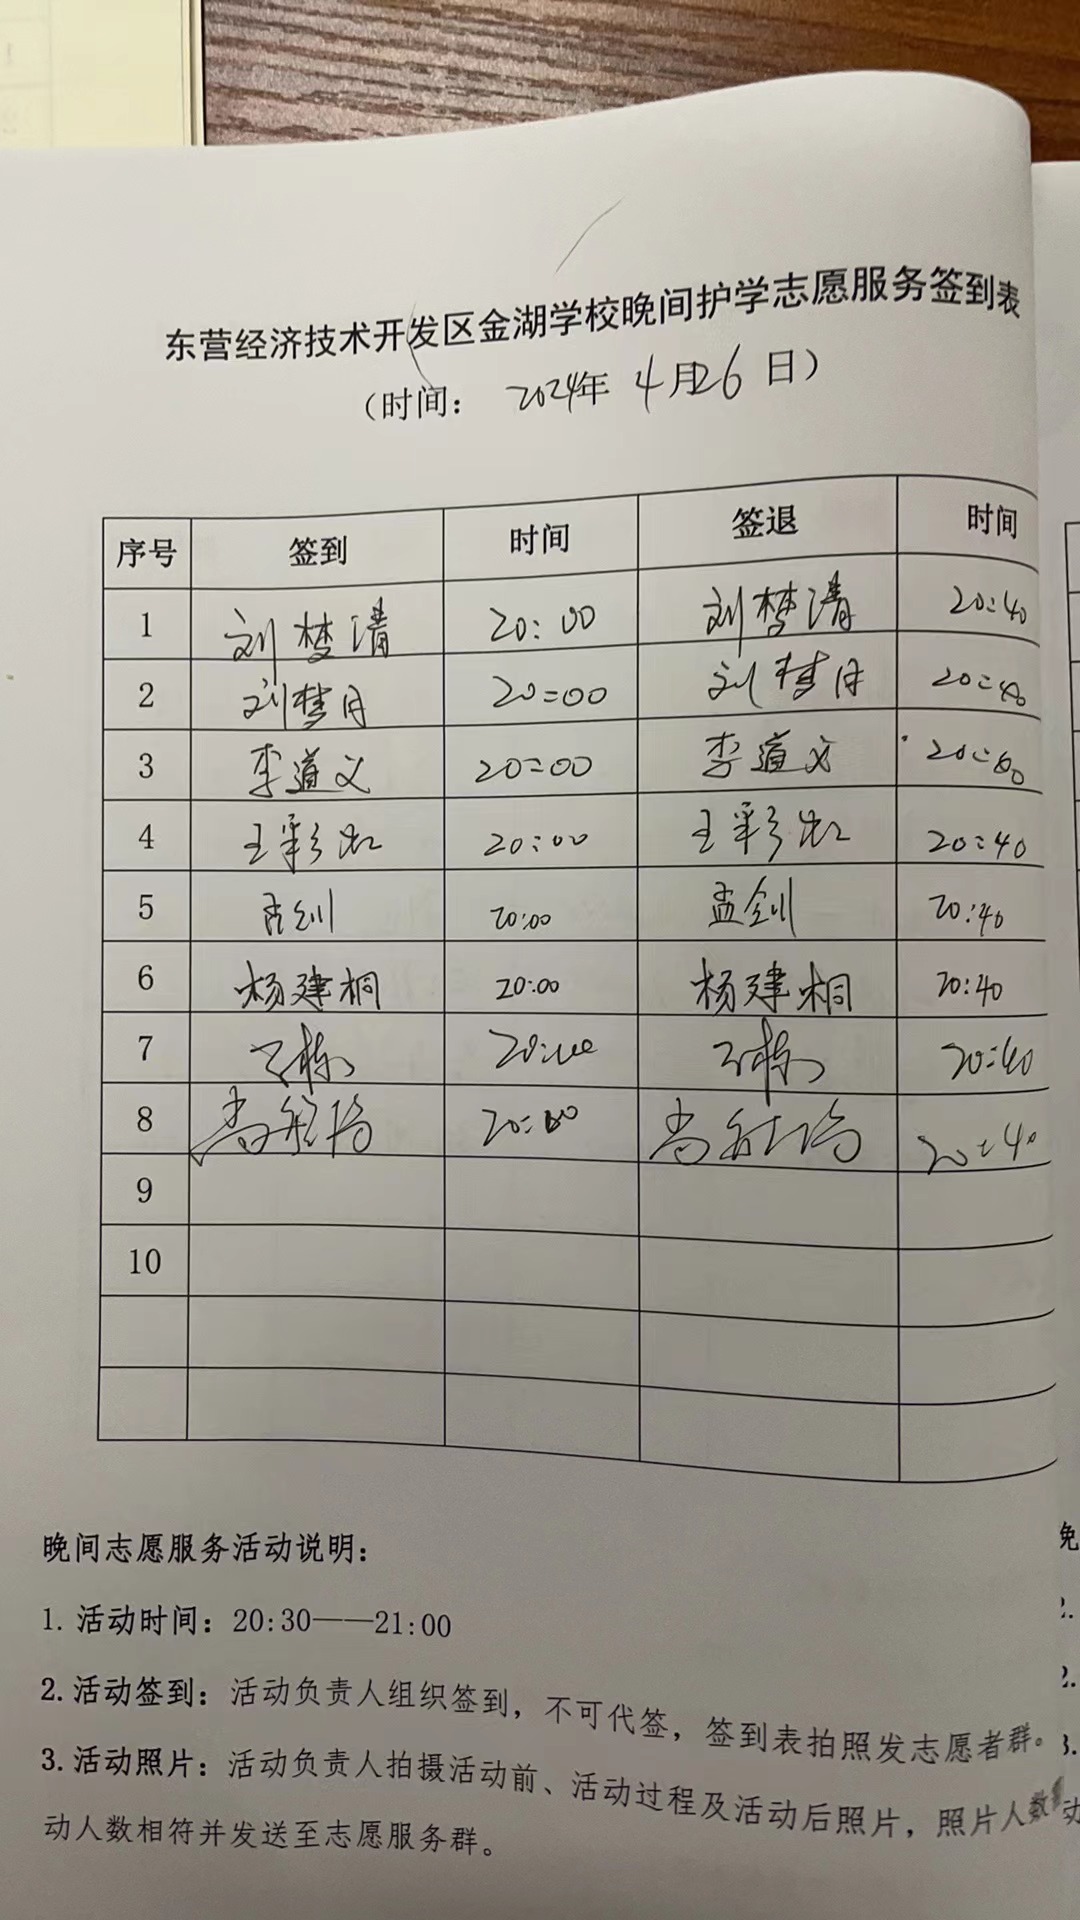 东营经济技术开发区金湖学校晚间护学志愿服务签到表
(时间: 2024年 4月26日)
序号 签到 时间 签退 时间
1 刘梦清 20:00 刘梦清 20:40
2 刘梦月 20:00 刘梦月 20:40
3 李道义 20:00 李道义 20:40
4 王彩虹 20:00 王彩虹 20:40
5 孟钊 20:00 孟钊 20:40
6 杨建桐 20:00 杨建桐 20:40
7 20:00 20:40
8 20:00 20:40
9
10
晚间志愿服务活动说明:
1. 活动时间: 20:30——21:00
2. 活动签到: 活动负责人组织签到, 不可代签, 签到表拍照发志愿者群。
3. 活动照片: 活动负责人拍摄活动前、活动过程及活动后照片, 照片人数
动人数相符并发送至志愿服务群。